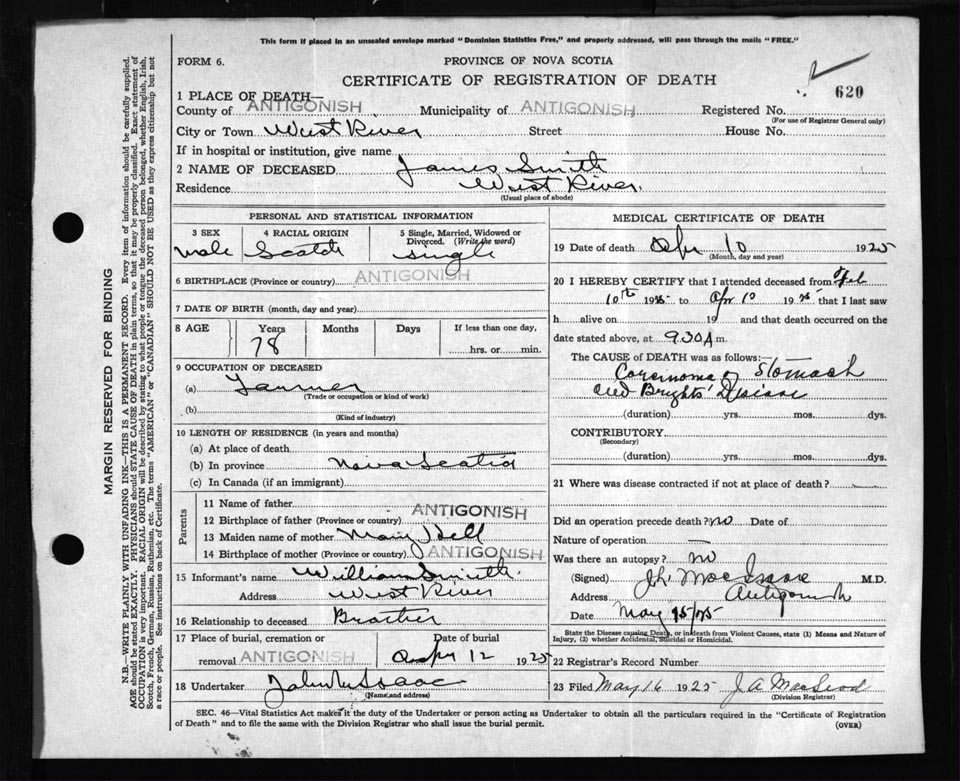 This form if placed in an unsealed envelope marked "Dominion Statistics Free," and properly addressed, will pass through the mails "FREE."
FORM 6.
PROVINCE OF NOVA SCOTIA
CERTIFICATE OF REGISTRATION OF DEATH
620
1 PLACE OF DEATH—
County of ANTIGONISH Municipality of ANTIGONISH Registered No.
(For use of Registrar General only)
City or Town West River Street House No.
If in hospital or institution, give name
2 NAME OF DECEASED James Smith
Residence West River.
(Usual place of abode)
PERSONAL AND STATISTICAL INFORMATION
3 SEX 4 RACIAL ORIGIN 5 Single, Married, Widowed or Divorced. (Write the word)
male Scotch single
6 BIRTHPLACE (Province or country) ANTIGONISH
7 DATE OF BIRTH (month, day and year)
8 AGE Years Months Days If less than one day,
78 hrs. or min.
9 OCCUPATION OF DECEASED
(a) Farmer
(Trade or occupation or kind of work)
(b)
(Kind of industry)
10 LENGTH OF RESIDENCE (in years and months)
(a) At place of death
(b) In province Nova Scotia
(c) In Canada (if an immigrant)
Parents
11 Name of father
12 Birthplace of father (Province or country) ANTIGONISH
13 Maiden name of mother Mary Bell
14 Birthplace of mother (Province or country) ANTIGONISH
15 Informant's name William Smith
Address West River
16 Relationship to deceased Brother
17 Place of burial, cremation or Date of burial
removal ANTIGONISH Apr 12 1925
18 Undertaker
(Name and address)
MEDICAL CERTIFICATE OF DEATH
19 Date of death Apr 10 1925
(Month, day and year)
20 I HEREBY CERTIFY that I attended deceased from Feb
10th 1925 to Apr 10 1925 that I last saw
h alive on 19 and that death occurred on the
date stated above, at 9.30 A m.
The CAUSE of DEATH was as follows:—
Carcinoma of Stomach
and Brights' Disease
(duration) yrs. mos. dys.
CONTRIBUTORY
(Secondary)
(duration) yrs. mos. dys.
21 Where was disease contracted if not at place of death?
Did an operation precede death? no Date of
Nature of operation —
Was there an autopsy? no
(Signed) J.L. MacIsaac M.D.
Address Antigonish
Date May 15/25
State the Disease causing Death, or in death from Violent Causes, state (1) Means and Nature of
Injury, (2) whether Accidental, Suicidal or Homicidal.
22 Registrar's Record Number
23 Filed May 16 1925 J A MacLeod
(Division Registrar)
SEC. 46—Vital Statistics Act makes it the duty of the Undertaker or person acting as Undertaker to obtain all the particulars required in the "Certificate of Registration
of Death" and to file the same with the Division Registrar who shall issue the burial permit.
(OVER)
MARGIN RESERVED FOR BINDING
N.B.—WRITE PLAINLY WITH UNFADING INK—THIS IS A PERMANENT RECORD. Every item of information should be carefully supplied.
AGE should be stated EXACTLY. PHYSICIANS should STATE CAUSE OF DEATH in plain terms, so that it may be properly classified. Exact statement of
OCCUPATION is very important. RACIAL ORIGIN will be described by stating to what people or tongue the deceased person belonged, whether English, Irish,
Scotch, French, German, Russian, Ruthenian, etc. The terms "AMERICAN" or "CANADIAN" SHOULD NOT BE USED as they express citizenship but not
a race or people. See instructions on back of Certificate.